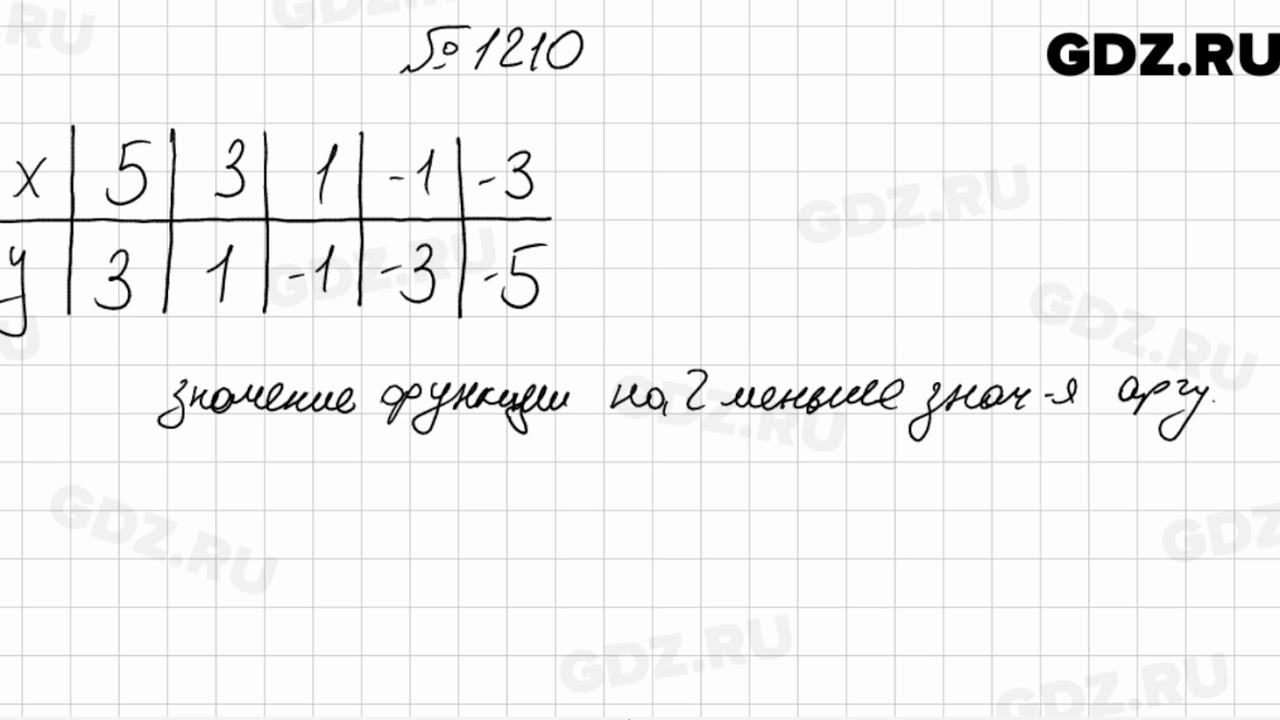 № 1210
GDZ.RU
x | 5 | 3 | 1 | -1 | -3
y | 3 | 1 | -1 | -3 | -5
значение функции на 2 меньше знач-я аргу.